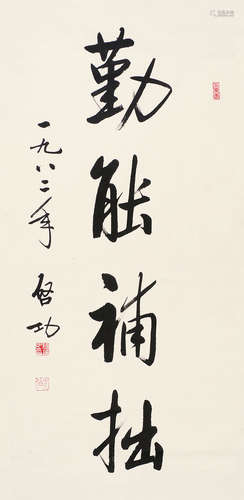 勤能補拙
一九八二年 啓功